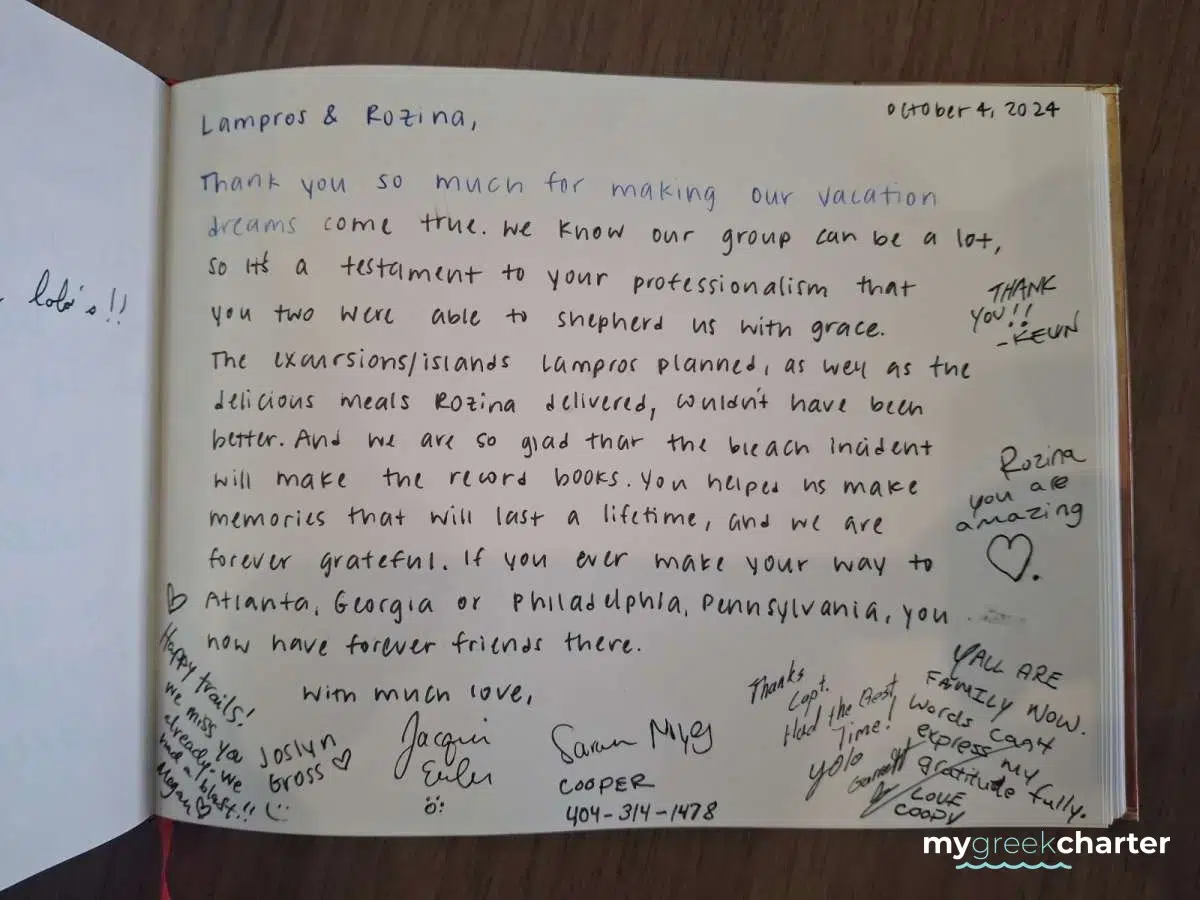 lolo's!!
October 4, 2024
Lampros & Rozina,
Thank you so much for making our vacation
dreams come true. We know our group can be a lot,
so it's a testament to your professionalism that
you two were able to shepherd us with grace.
The excursions/islands Lampros planned, as well as the
delicious meals Rozina delivered, couldn't have been
better. And we are so glad that the bleach incident
will make the record books. You helped us make
memories that will last a lifetime, and we are
forever grateful. If you ever make your way to
Atlanta, Georgia or Philadelphia, Pennsylvania, you
now have forever friends there.
With much love,
THANK
YOU!!
-KEVIN
Rozina
you are
amazing
Happy trails!
We miss you
already. We
had a blast!!
Megan
Joslyn
Gross
Jacqui
Euler
Sarah
COOPER
404-314-1478
Thanks
Capt.
Had the Best
Time!
yolo
Garrett
YALL ARE
FAMILY NOW.
Words can't
express my
gratitude fully.
LOVE
COOPY
mygreekcharter